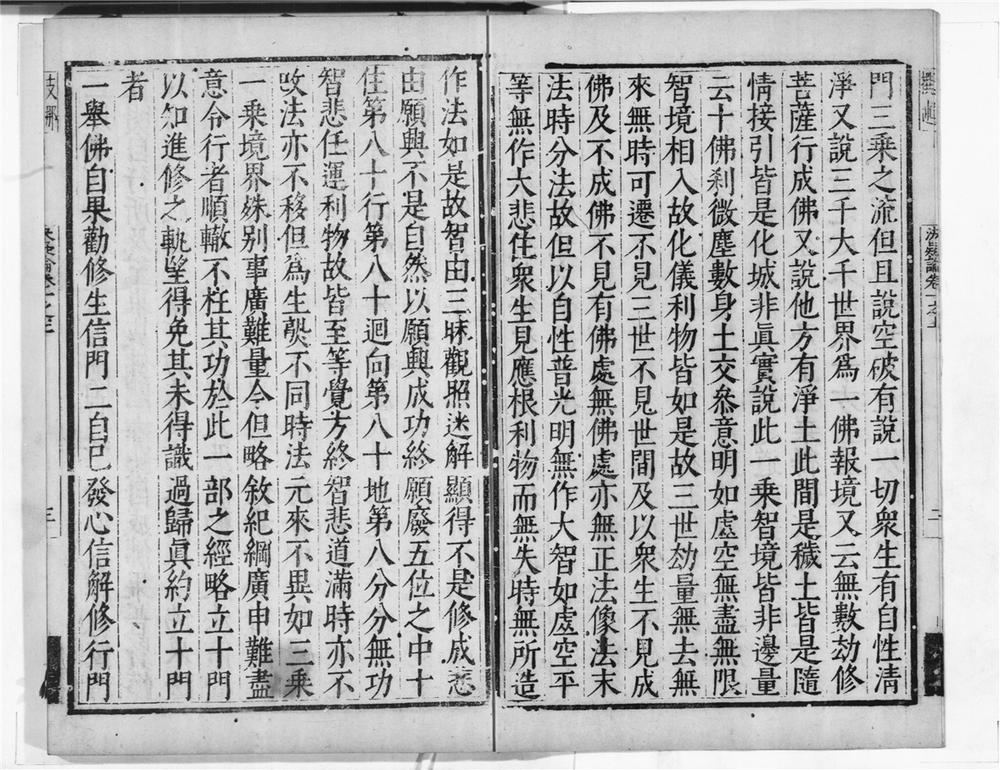 門三乘之流但且說空破有說一切衆生有自性清
淨又說三千大千世界爲一佛報境又云無數劫修
菩薩行成佛又說他方有淨土此間是穢土皆是隨
情接引皆是化城非眞實說此一乘智境皆非邊量
云十佛刹微塵數身土交叅意明如虛空無盡無限
智境相入故化儀利物皆如是故三世劫量無去無
來無時可遷不見三世不見世間及以衆生不見成
佛及不成佛不見有佛處無佛處亦無正法像法末
法時分法故但以自性普光明無作大智如虛空平
等無作大悲住衆生見應根利物而無失時無所造
作法如是故智由三昧觀照迷解顯得不是修成悲
由願興不是自然以願興成功終願廢五位之中十
住第八十行第八十迴向第八十地第八分分無功
智悲任運利物故皆至等覺方終智悲道滿時亦不
攺法亦不移但爲生𤍠不同時法元來不異如三乘
一乘境界殊别事廣難量今但略敘紀綱廣申難盡
意令行者順轍不枉其功於此一部之經略立十門
以知進修之軌望得免其未得識過歸眞約立十門
者
一舉佛自果勸修生信門二自己發心信解修行門